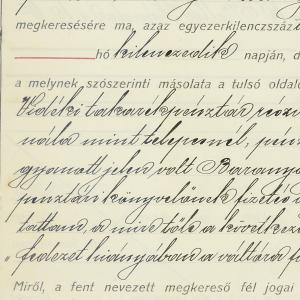 megkeresésére ma, azaz egyezerkilenczszáz
hó kilenczedik napján, d
a melynek szószerinti másolata a tulsó oldalo
Vidéki takarékpénztár részv
nála mint telepesnél, pénz
gyanott jelen volt Baranya
pénztári könyvelőnek fizetés v
tattam, a mire tőle a következ
fedezet hiányában a váltóra fi
Miről, a fent nevezett megkereső fél jogai